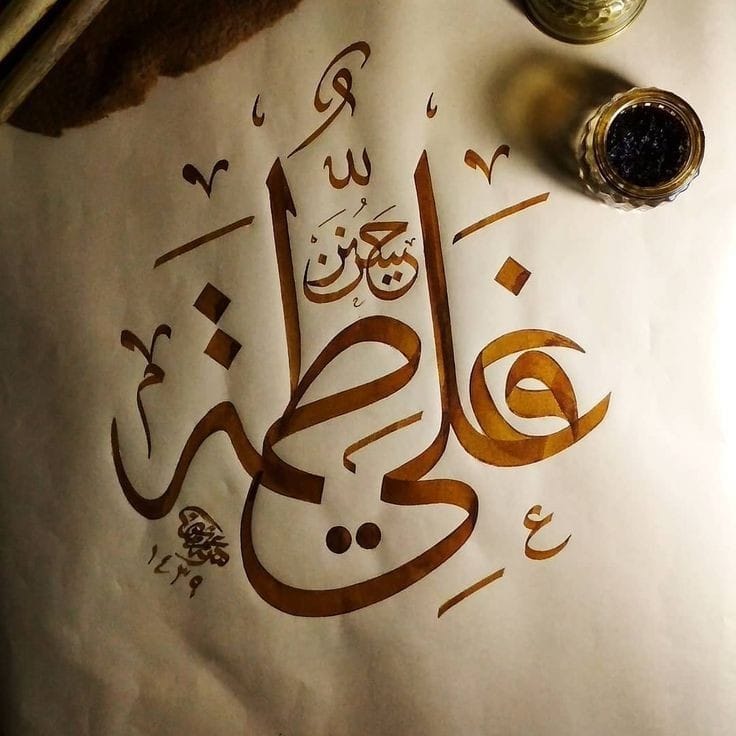 حسين
علي
فاطمة
١٤٣٩